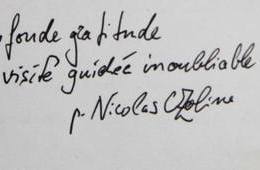 fonde gratitude
visite guidée inoubliable
p. Nicolas